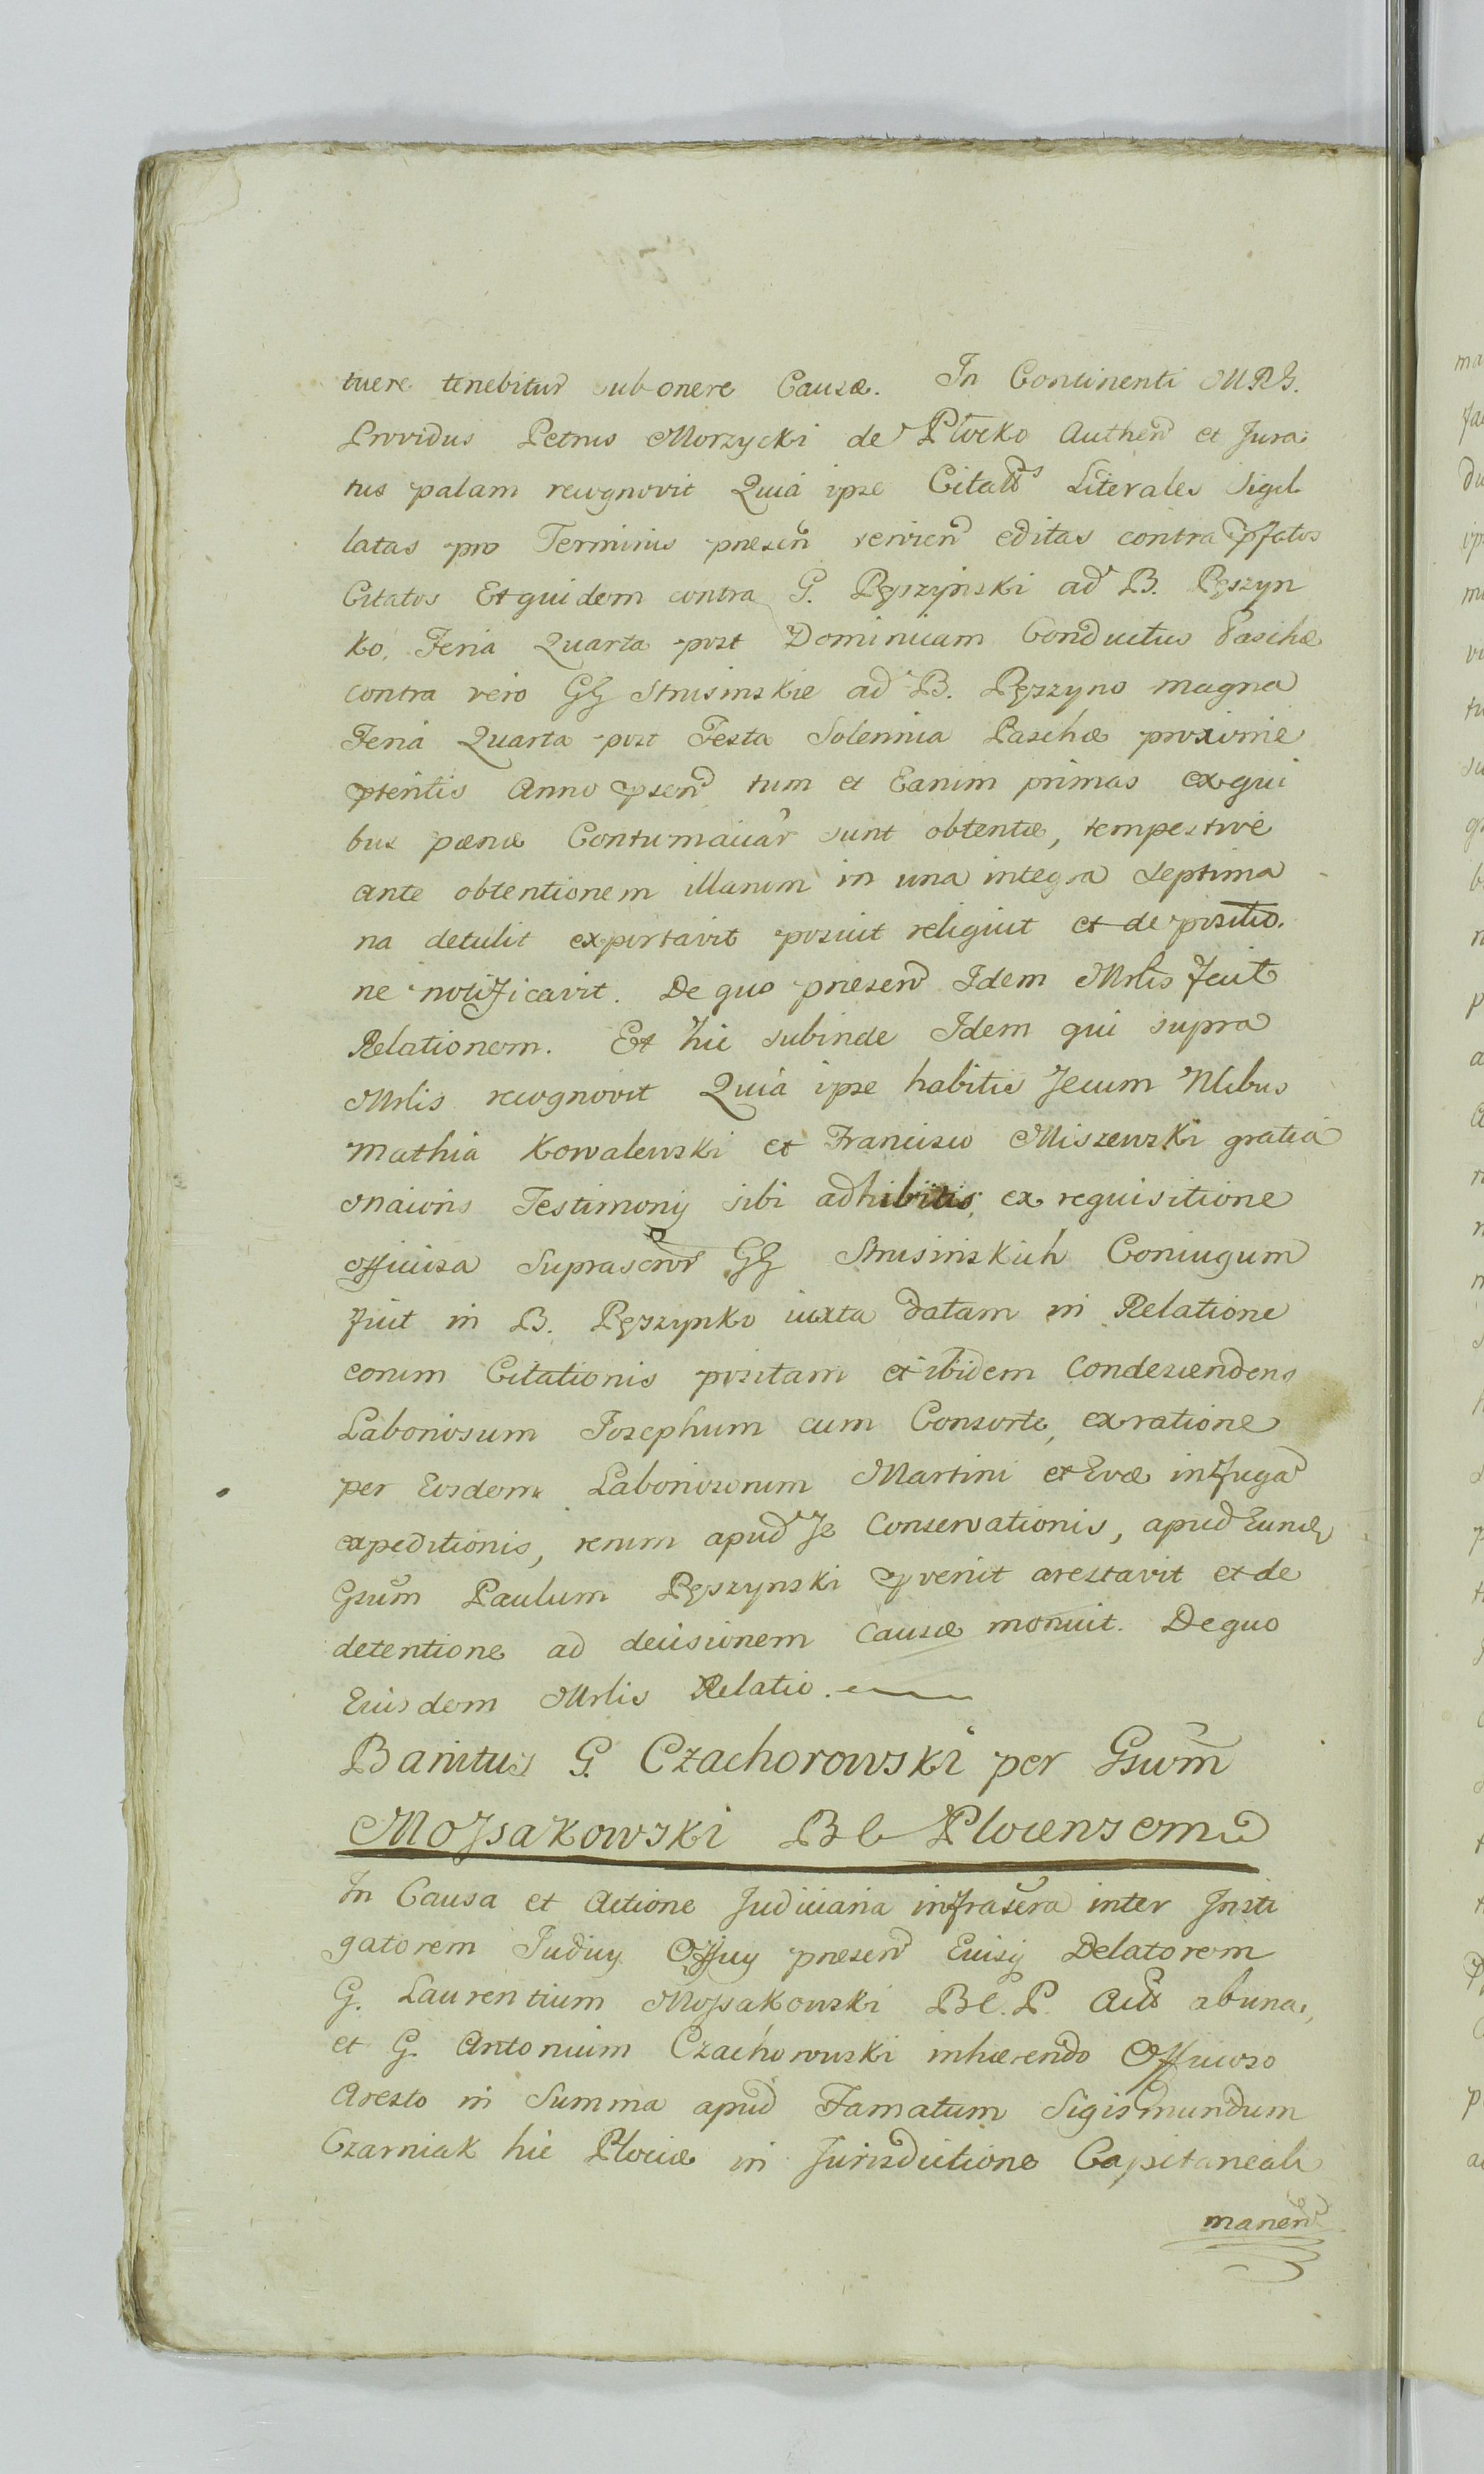 tuere tenebitur sub onere Causæ. In Continenti MRG.
Providus Petrus Morzycki de Płocko Authen et Jura
tus palam recognovit Quia ipse Citatts Literales Sigil
latas pro Terminis præsen servien editas contra pfatos
Citatos Et quidem contra G. Pęszynski ad B. Pęszyn
ko. Feria Quarta post Dominicam Conductus Paschæ
contra vero GG Strusinskie ad B. Pęszyno magna
Feria Quarta post Festa Solennia Paschæ proxime
pteritis Anno psen tum et Earum primas ex qui
bus pænæ Contumaciar sunt obtentæ, tempestive
ante obtentionem illarum in una integra Septima
na detulit exportavit posuit religiut et de positio.
ne notificavit. De quo præsen Idem Mrlis fecit
Relationem. Et hic subinde Idem qui supra
Mrlis recognovit Quia ipse habitis secum Nlibus
Mathia Kowalewski et Francisco Miszewski gratia
Maioris Testimonij sibi adhibitis, ex requisitione
officiosa Suprascror GG Strusinskich Coniugum
fuit in B. Pęszynko iuxta datam in Relatione
eorum Citationis positam et ibidem Condescendens
Laboriosum Josephum cum Consorte, ex ratione
per Eosdem Laboriosorum Martini et Evæ in fuga
expeditionis, rerum apud se Conservationis, apud Eund
Gsum Paulum Pęszynski pvenit arestavit et de
detentione ad decisionem causæ monuit. De quo
Eiusdem Mrlis Relatio.
Banitus G. Czachorowski per Gsum
Mossakowski Bb Plocensem
In Causa et Actione Judiciaria infrascra inter Insti
gatorem Judicij Officij præsen Euisq Delatorem
G. Laurentium Mossakowski Bb. P. Actt ab una,
et G. Antonium Czachorowski inhærendo Officioso
Aresto in Summa apud Famatum Sigismundum
Czarniak hic Plociæ in Jurisdictione Capitaneali
manen